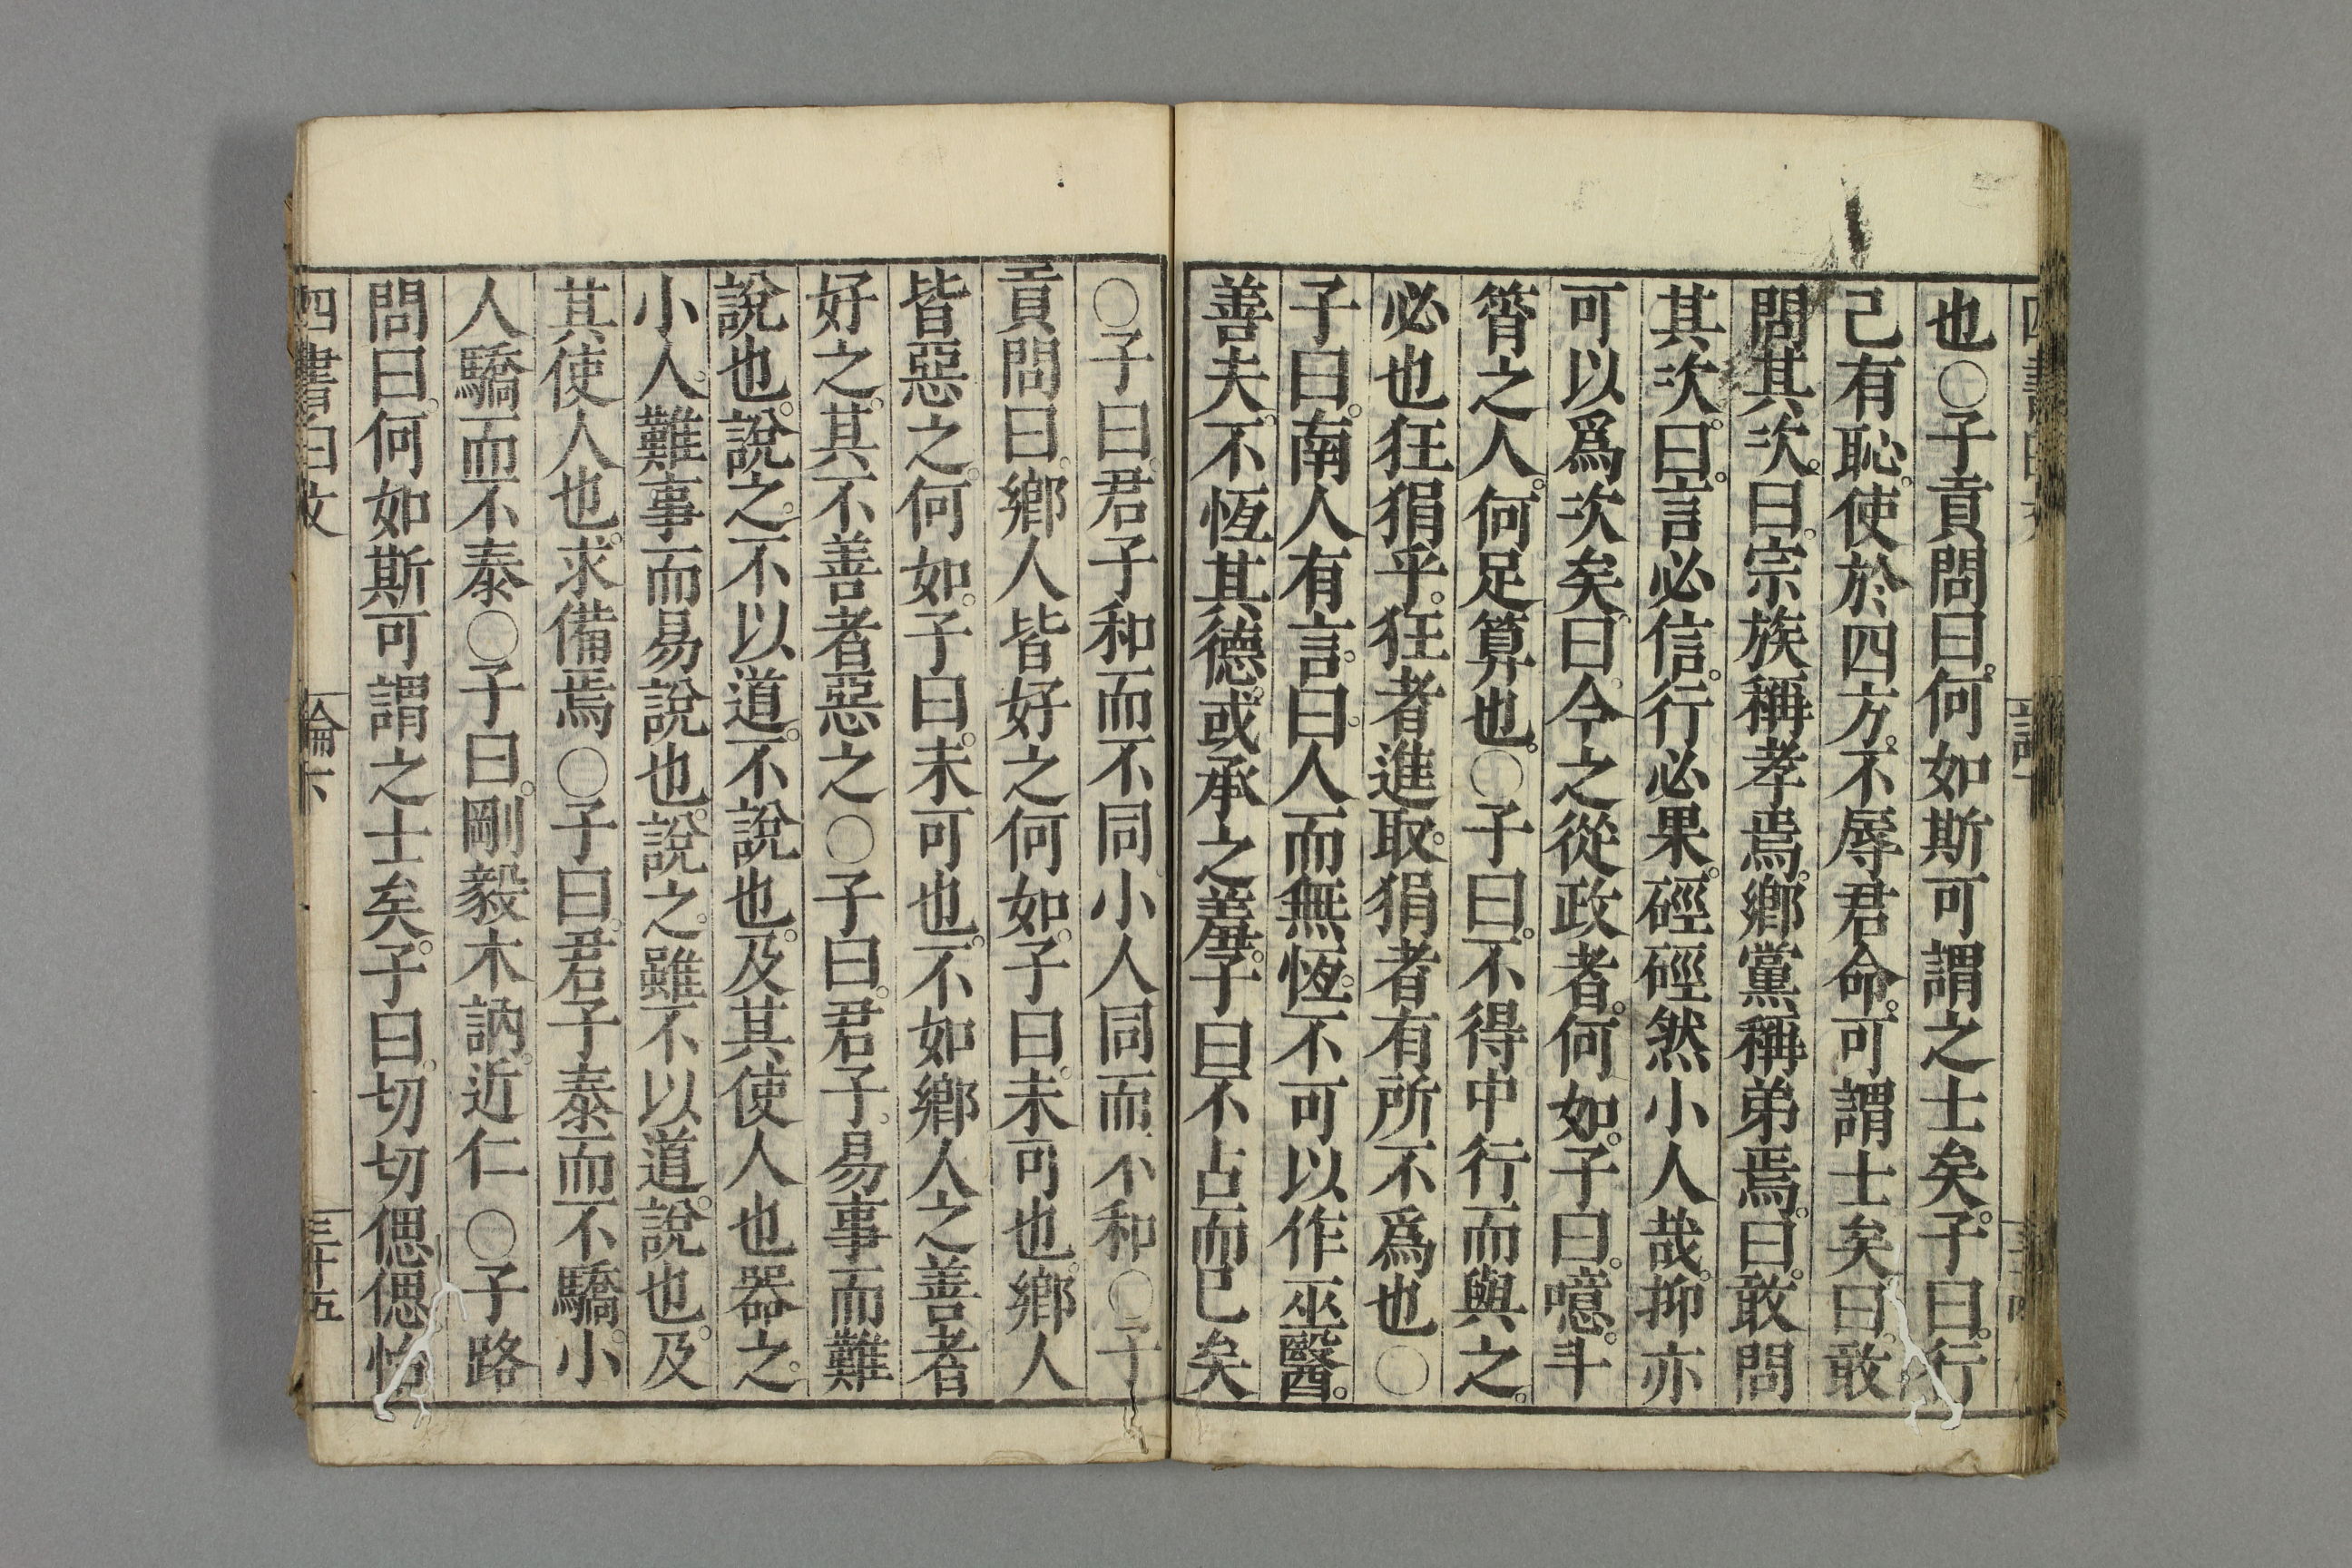 也○子貢問曰。何如斯可謂之士矣。子曰。行
己有恥。使於四方。不辱君命。可謂士矣。曰。敢
問其次。曰。宗族稱孝焉。鄉黨稱弟焉。曰。敢問
其次。曰。言必信。行必果。硜硜然小人哉。抑亦
可以爲次矣。曰。今之從政者。何如。子曰。噫。斗
筲之人。何足算也。○子曰。不得中行而與之。
必也狂狷乎。狂者進取。狷者有所不爲也○
子曰。南人有言。曰。人而無恆。不可以作巫醫。
善夫。不恆其德。或承之羞。子曰不占而已矣
○子曰。君子和而不同。小人同而不和○子
貢問曰。鄉人皆好之何如。子曰。未可也。鄉人
皆惡之。何如。子曰。未可也。不如鄉人之善者
好之。其不善者惡之○子曰。君子。易事而難
說也。說之。不以道。不說也。及其使人也器之。
小人。難事而易說也。說之。雖不以道。說也。及
其使人也。求備焉○子曰。君子泰而不驕。小
人驕而不泰○子曰。剛毅木訥。近仁○子路
問曰。何如斯可謂之士矣。子曰。切切偲偲怡
四書白文
論下
三十五